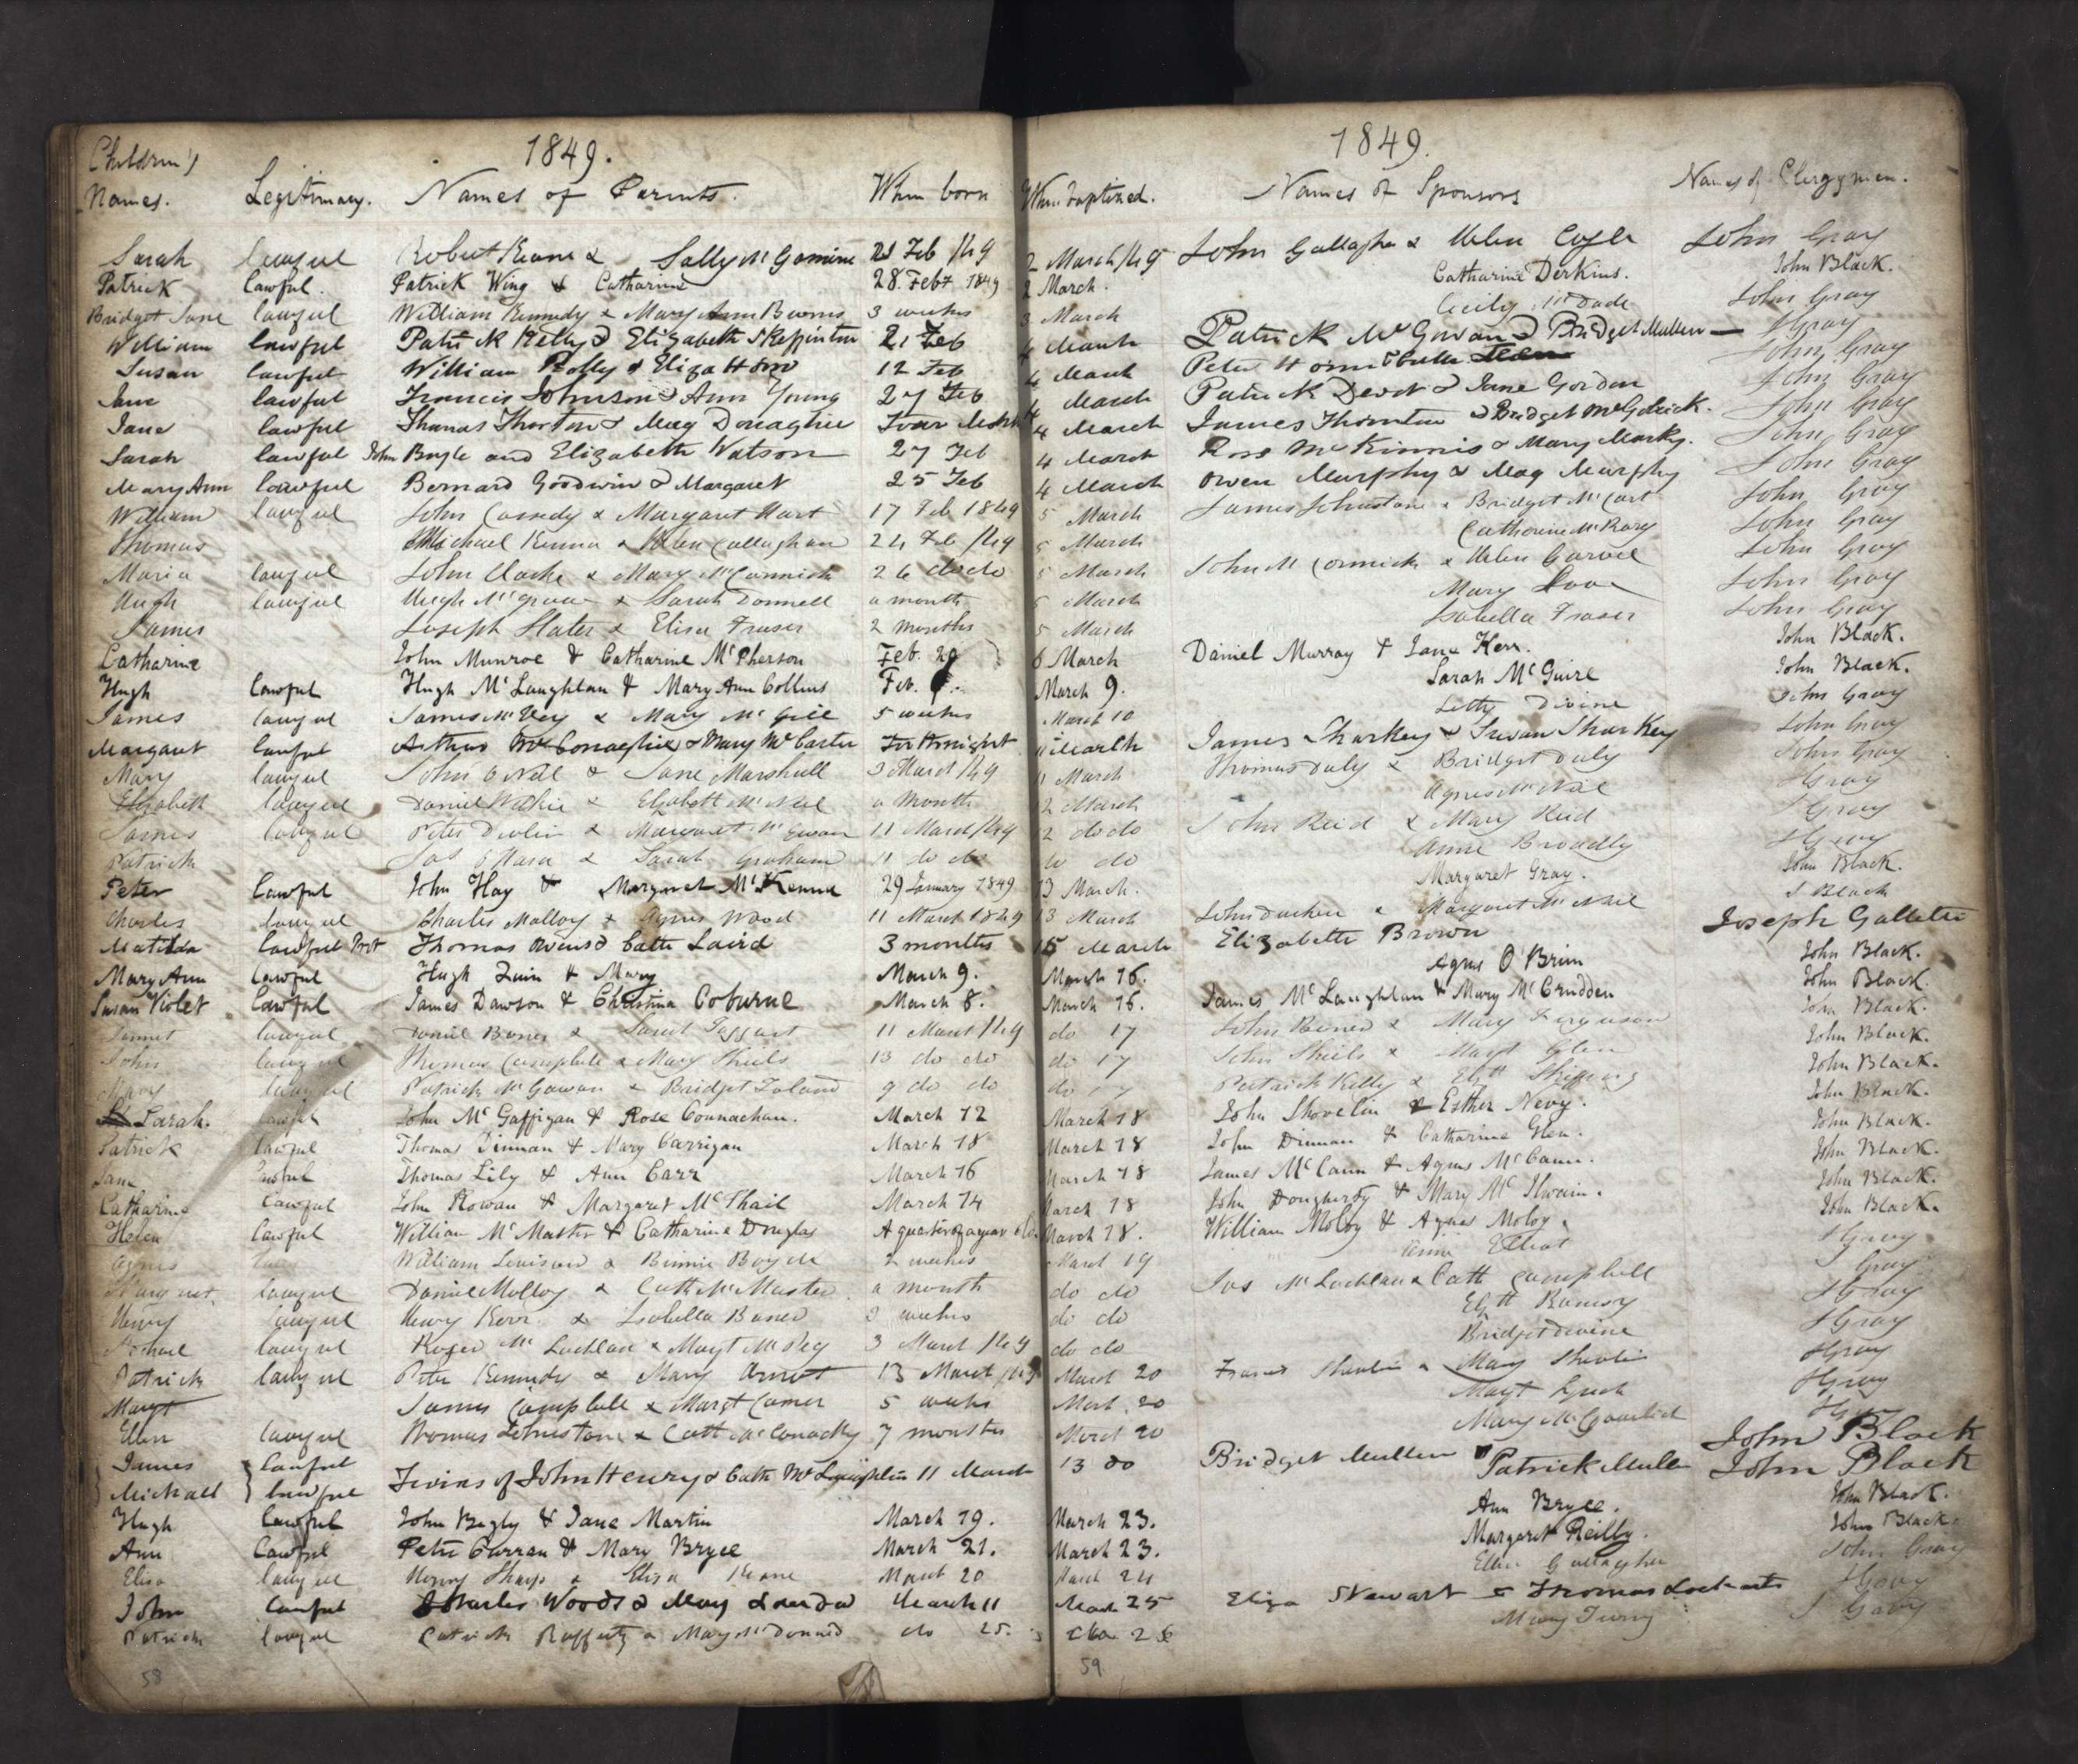 1849.
1849.
Children's
Names. Legitimacy. Names of Parents. When born When baptized. Names of Sponsors Names of Clergymen.
Sarah lawful Robert Keane & Sally McGomine 21 Feb /49 2 March/49 John Gallagher & Helen Coyle John Gray
Patrick Lawful. Patrick Wing & Catharine 28. Feby 1849 2 March. Catharine Derkins. John Black.
Bridget Jane lawful William Kennedy & Mary Ann Burns 3 weeks 3 March Cecily McDade John Gray
William lawful Patrick Kelly & Elizabeth Skeffinton 21 Feb 4 March Patrick McGowan & Bridget Mullen — J Gray
Susan lawful William Kelly & Eliza Horn 12 Feb 4 March Peter Horn John Gray
Jane lawful Francis Johnson & Ann Young 27 Feb 4 March Patrick Devit & Jane Gordon John Gray
Jane lawful Thomas Thorton & Mag Donaghie Four 4 March James Thornton & Bridget McGolrick. John Gray
Sarah lawful John Boyle and Elizabeth Watson 27 Feb 4 March Ross McKinnis & Mary Marky. John Gray
Mary Ann lawful Bernard Goodwin & Margaret 25 Feb 4 March Owen Murphy & Mag Murphy John Gray
William lawful John Cassedy & Margaret Hart 17 Feb 1849 5 March James Johnstone & Bridget McCart John Gray
Thomas Michael Kenna & Helen Callaghan 24 Feb /49 5 March Catherine McRory John Gray
Maria lawful John Clarke & Mary McCormick 26 do do 5 March John McCormick & Helen Garvel John Gray
Hugh lawful Hugh McGraw & Sarah Donnell a month 5 March Mary Love John Gray
James Joseph Slater & Elisa Fraser 2 months 5 March Isabella Fraser John Gray
Catharine John Munroe & Catharine McPherson Feb. 20 6 March Daniel Murray & Jane Kerr. John Black.
Hugh Lawful Hugh McLaughlan & Mary Ann Collins Feb. March 9. Sarah McGuire John Black.
James lawful James McVey & Mary McGill 5 weeks March 10 Letty Divine John Gray
Margaret lawful Arthur McConaghie & Mary McCarter Forthnight 11 March James Sharkey & Susan Sharkey John Gray
Mary lawful John O Neil & Jane Marshall 3 March /49 11 March Thomas Daly & Bridget Daly John Gray
Elizabeth lawful Daniel Wilkie & Elizabeth McNeil a month 12 March Agnes McNeil J Gray
James lawful Peter Devlin & Margaret McGowan 11 March/49 12 do do John Reid & Mary Reid J Gray
Patrick Jas O Hara & Sarah Graham 11 do do do do Anne Broadly J Gray
Peter Lawful John Hay & Margaret McKenna 29 January 1849 13 March. Margaret Gray. John Black.
Charles lawful Charles Malloy & Agnes Wood 11 March 1849 13 March John & Margaret McNeil J Black
Matilda lawful Prot Thomas Owens & Cath Laird 3 months 15 March Elizabeth Brown Joseph Galletti
Mary Ann Lawful Hugh Quin & Mary March 9. March 16. Agnes O'Brien John Black.
Susan Violet Lawful James Dawson & Christina Coburne March 8. March 16. James McLaughlan & Mary McCrudden John Black.
Jannet lawful Daniel Bones & Janet Taggart 11 March /49 do 17 John & Mary Ferguson John Black.
John lawful Thomas Campbell & Mary Shiels 13 do do do 17 John Shiels & Margt Glen John Black.
Mary lawful Patrick McGowan & Bridget Toland 9 do do do 17 Patrick Kelly & John Black.
Sarah. lawful John McGaffigan & Rose Connachan. March 12 March 18 John Shovelin & Esther Nevy. John Black.
Patrick lawful Thomas Dinnan & Mary Carrigan March 18 March 18 John Dinnan & Catharine Glen. John Black.
Jane Lawful Thomas Lily & Ann Carr March 16 March 18 James McCann & Agnes McCann. John Black.
Catharine Lawful John Rowan & Margaret McPhail March 14 March 18 John Dougherty & Mary McIlwain. John Black.
Helen Lawful William McMaster & Catharine Douglas A quarter of a year old. March 18. William Moloy & Agnes Moloy. John Black.
Agnes William & Binnie Boyde 2 weeks March 19 Annie Elliot J Gray
Margaret lawful Daniel Molloy & Cath McMaster a month do do Jas McLachlan & Cath Campbell J Gray
Henry lawful Henry Kerr & Isabella 3 weeks do do Elizth Ramsay J Gray
Michael lawful Roger McLachlan & Margt McPhey 3 March /49 do do Bridget Devine J Gray
Patrick lawful Peter Kennedy & Mary Arnot 13 March /49 March 20 Francis Shovlin & Mary Shovlin J Gray
Margt James Campbell & Margt Comer 5 weeks March 20 Margt Lynch J Gray
Ellen lawful Thomas Johnstone & Cath McConachy 7 months March 20 Mary McGourlick J Gray
James lawful Twins of John Henry & Cath McLaughlin 11 March 13 do Bridget Mullen Patrick Mulle John Black
Michall lawful John Black
Hugh Lawful John Begly & Jane Martin March 19. March 23. Ann Bryce. John Black.
Ann Lawful Peter Curran & Mary Bryce March 21. March 23. Margaret Reilly. John Black.
Elisa lawful Henry Sharp & Elisa Keane March 20 March 24 Ellen Gallagher John Gray
John Lawful Charles Woods & Mary March 11 March 25 Eliza Stewart & Thomas Lockarts J Gray
Patrick lawful Patrick Rafferty & Mary McDonnald do 25. do 26 Mary Turry J Gray
58
59